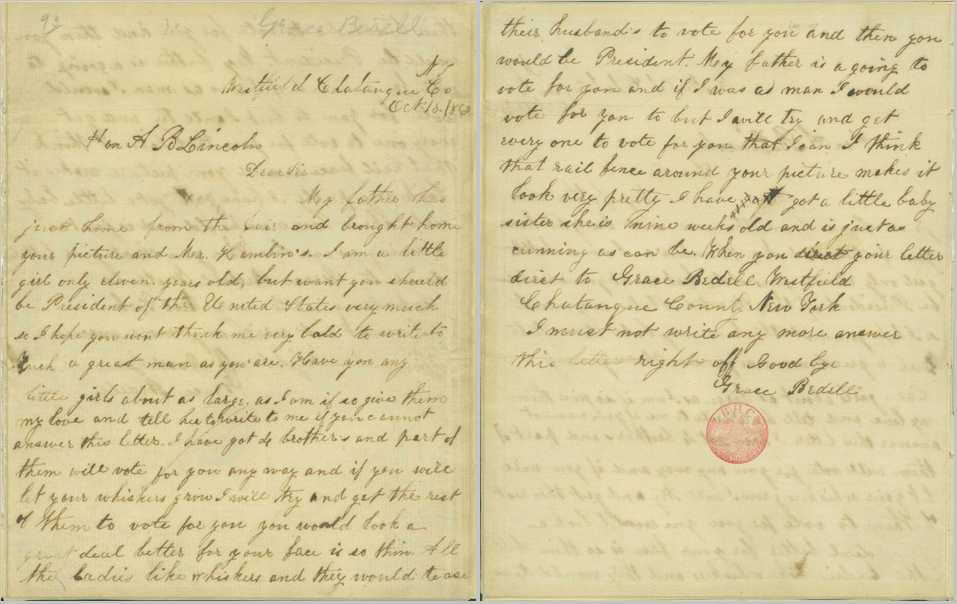 93
Grace Bedell
N Y
Westfield Chatauque Co
Oct 15. 1860
Hon A B Lincoln
Dear Sir
My father has
just home from the fair and brought home
your picture and Mr. Hamlin's. I am a little
girl only eleven years old, but want you should
be President of the United States very much
so I hope you wont think me very bold to write to
such a great man as you are. Have you any
little girls about as large as I am if so give them
my love and tell her to write to me if you cannot
answer this letter. I have got 4 brothers and part of
them will vote for you any way and if you will
let your whiskers grow I will try and get the rest
of them to vote for you you would look a
great deal better for your face is so thin. All
the ladies like whiskers and they would tease
their husband's to vote for you and then you
would be President. My father is a going to
vote for you and if I was a man I would
vote for you to but I will try and get
every one to vote for you that I can I think
that rail fence around your picture makes it
look very pretty I have got a little baby
sister she is nine weeks old and is just as
cunning as can be. When you direct your letter
dirct to Grace Bedell Westfield
Chatauque County New York
I must not write any more answer
this letter right off Good bye
Grace Bedell